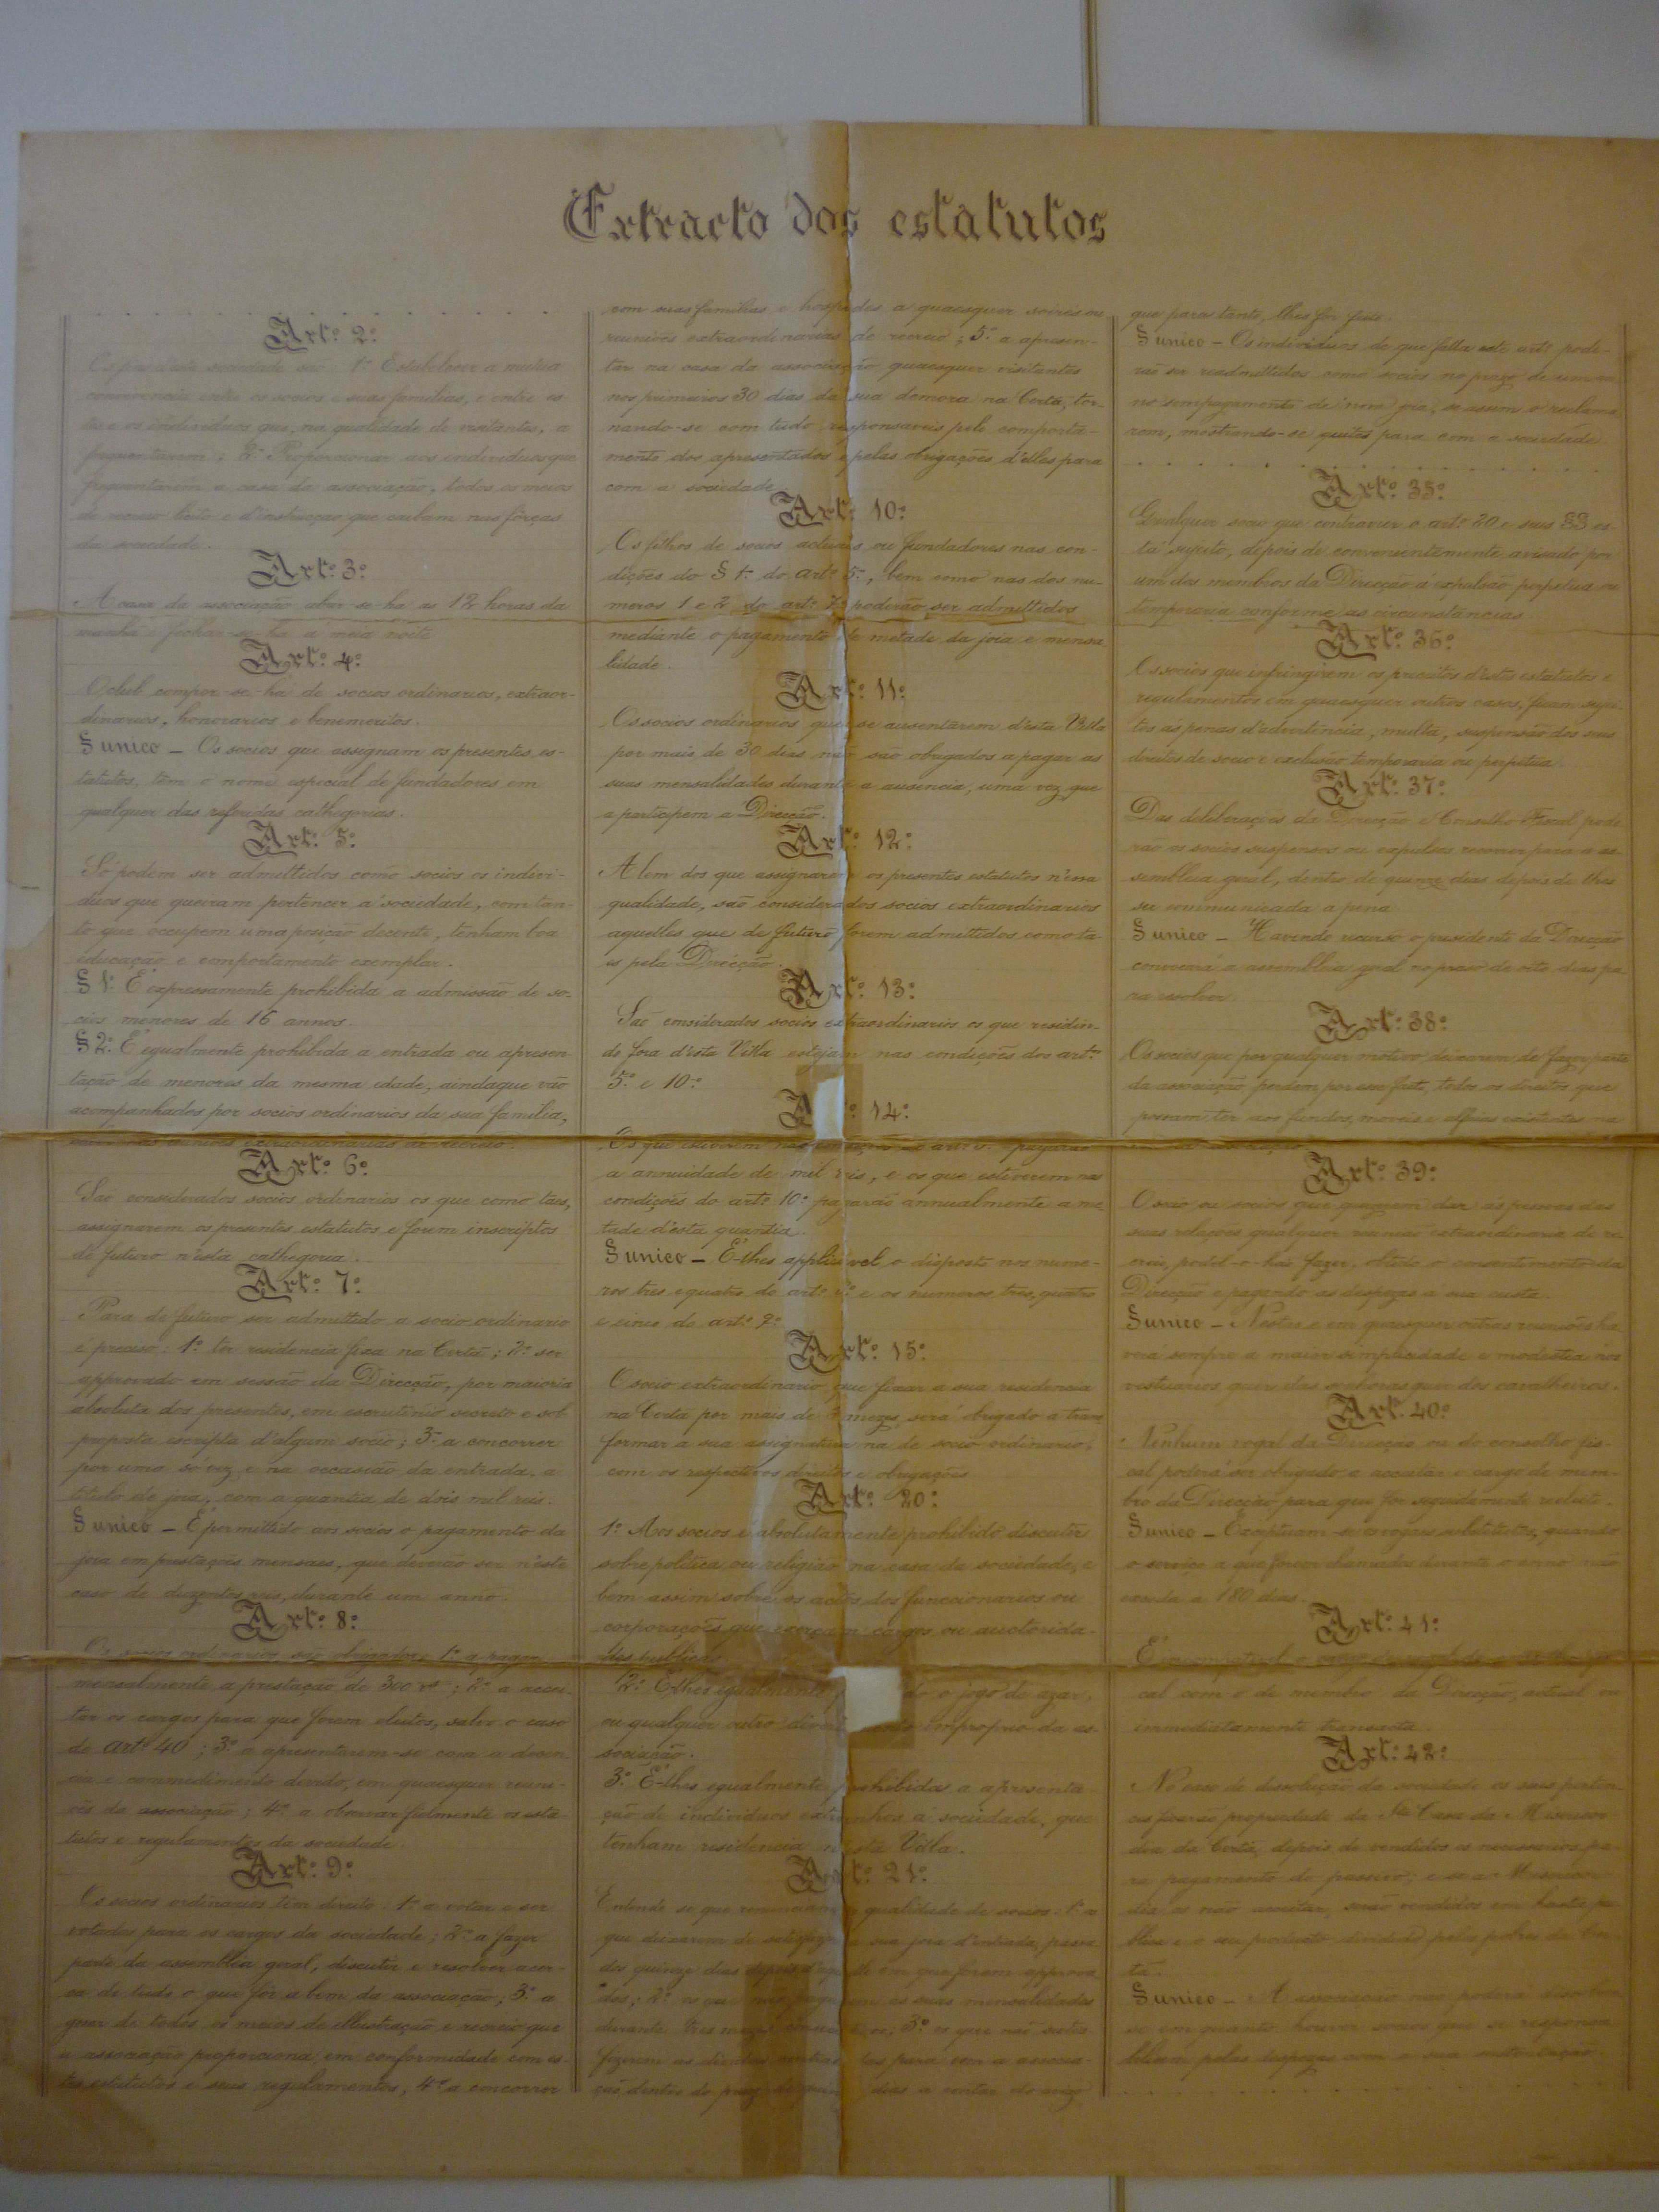 Extracto dos estatutos
Art.º 2.º
Os fins d'esta sociedade são 1.º Estabelecer a mutua
convivencia entre os socios e suas familias, e entre es-
tes e os individuos que, na qualidade de visitantes, a
frequentarem; 2.º Proporcionar aos individuos que
frequentarem a casa da associação, todos os meios
de recreio licito e d'instrucção que caibam nas fôrças
da sociedade.
Art.º 3.º
A casa da associação abrir-se-ha as 12 horas da
manhã e fechar-se-ha á meia noite
Art.º 4.º
O club compor-se-ha de socios ordinarios, extraor-
dinarios, honorarios e benemeritos.
§ unico — Os socios que assignam os presentes es-
tatutos, têm o nome especial de fundadores em
qualquer das referidas cathegorias.
Art.º 5.º
Só podem ser admettidos como socios os indivi-
duos que queiram pertencer á sociedade, com tan-
to que occupem uma posição decente, tenham boa
educação e comportamento exemplar.
§ 1.º É expressamente prohibida a admissão de so-
cios menores de 16 annos.
§ 2.º É igualmente prohibida a entrada ou apresen-
tação de menores da mesma idade, ainda que vão
acompanhados por socios ordinarios da sua familia,
extraordinarias de recreio.
Art.º 6.º
São considerados socios ordinarios os que como taes,
assignarem os presentes estatutos e forem inscriptos
de futuro n'esta cathegoria.
Art.º 7.º
Para de futuro ser admettido a socio ordinario
é preciso: 1.º ter residencia fixa na Certã; 2.º ser
approvado em sessão da Direcção, por maioria
absoluta dos presentes, em escrutinio secreto e sob
proposta escripta d'algum socio; 3.º a concorrer
por uma só vez e na occasião da entrada, a
titulo de joia, com a quantia de dois mil reis.
§ unico — É permittido aos socios o pagamento da
joia em prestações mensaes, que deverão ser n'este
caso de duzentos reis, durante um anno.
Art.º 8.º
Os socios ordinarios são obrigados: 1.º a pagar
mensalmente a prestação de 300 rs; 2.º a accei-
tar os cargos para que forem eleitos, salvo o caso
do art.º 40; 3.º a apresentarem-se com a decen-
cia e commedimento devido, em quaesquer reuni-
ões da associação; 4.º a observar fielmente os esta-
tutos e regulamentos da sociedade.
Art.º 9.º
Os socios ordinarios têm direito: 1.º a votar e ser
votados para os cargos da sociedade; 2.º a fazer
parte da assemblêa geral, discutir e resolver acer-
ca de tudo o que fôr a bem da associação; 3.º a
gosar de todos os meios de illustração e recreio que
a associação proporciona, em conformidade com es-
tes estatutos e seus regulamentos; 4.º a concorrer
com suas familias e hospedes a quaesquer soirées ou
reuniões extraordinarias de recreio; 5.º a apresen-
tar na casa da associação quaesquer visitantes
nos primeiros 30 dias da sua demora na Certã, tor-
nando-se com tudo responsaveis pelo comporta-
mento dos apresentados e pelas obrigações d'elles para
com a sociedade
Art.º 10.º
Os filhos de socios actuaes ou fundadores nas con-
dições do § 1.º do art.º 5.º, bem como nas dos nu-
meros 1 e 2 do art.º 7.º poderão ser admettidos
mediante o pagamento de metade da joia e mensa
lidade.
Art.º 11.º
Os socios ordinarios que se ausentarem d'esta Villa
por mais de 30 dias não são obrigados a pagar as
suas mensalidades durante a ausencia, uma vez que
a participem á Direcção.
Art.º 12.º
Alem dos que assignarem os presentes estatutos n'essa
qualidade, são considerados socios extraordinarios
aquelles que de futuro forem admettidos como ta-
es pela Direcção.
Art.º 13.º
São considerados socios extraordinarios os que residin-
do fora d'esta Villa estejam nas condições dos art.ºs
5.º e 10.º
Art.º 14.º
Os que estiverem nas condições do art.º 5.º pagarão
a annuidade de mil reis, e os que estiverem nas
condições do art.º 10.º pagarão annualmente a me
tade d'esta quantia.
§ unico — É-lhes applicavel o disposto nos nume-
ros tres e quatro do art.º 8.º e os numeros tres, quatro
e cinco do art.º 9.º
Art.º 15.º
O socio extraordinario que fixar a sua residencia
na Certã por mais de mezes, será obrigado a trans
formar a sua assignatura na de socio ordinario,
com os respectivos direitos e obrigações
Art.º 20.º
1.º Aos socios é absolutamente prohibido discutir
sobre politica ou religião na casa da sociedade, e
bem assim sobre os actos dos funccionarios ou
corporações que exerçam cargos ou auctorida-
des publicas
2.º É-lhes egualmente do o jogo de azar,
ou qualquer outro diver improprio da as-
sociação.
3.º É-lhes egualmente prohibidas a apresenta-
ção de individuos extranhos á sociedade, que
tenham residencia n'esta Villa.
Art.º 21.º
Entende-se que renunciam a qualidade de socios: 1.º os
que deixarem de satisfazer a sua joia d'entrada, passa
dos quinze dias depois d'aquelle em que foram approva
dos; 2.º os que não pagarem as suas mensalidades
durante tres mezes; 3.º os que não satis-
fizerem as dividas contrahidas para com a associa-
ção dentro do prazo de quinze dias a contar do aviso
que para tanto, lhes fôr feito.
§ unico — Os individuos de que falla este art.º pode-
rão ser readmettidos como socios no prazo de um an
no sem pagamento de nova joia, se assim o reclama
rem, mostrando-se quites para com a sociedade.
Art.º 35.º
Qualquer socio que contravier o art.º 20 e seus §§ es-
tá sujeito, depois de convenientemente avisado por
um dos membros da Direcção á expulsão perpetua ou
temporaria conforme as circunstancias.
Art.º 36.º
Os socios que infringirem os preceitos d'estes estatutos e
regulamentos em quaesquer outros casos, ficam sujei-
tos ás penas d'advertencia, multa, suspensão dos seus
direitos de socio e exclusão temporaria ou perpetua.
Art.º 37.º
Das deliberações da Direcção e Conselho Fiscal pode-
rão os socios suspensos ou expulsos recorrer para a as-
semblêa geral, dentro de quinze dias depois de lhes
ser communicada a pena
§ unico — Havendo recurso o presidente da Direcção
convocará a assemblêa geral no praso de oito dias pa-
ra resolver.
Art.º 38.º
Os socios que por qualquer motivo deixarem de fazer parte
da associação, perdem por esse facto, todos os direitos que
possam ter aos fundos, moveis e alfaias existentes na
Art.º 39.º
O socio ou socios que quizerem dar ás pessoas das
suas relações qualquer reunião extraordinaria de re
creio, podel-o-hão fazer, obtido o consentimento da
Direcção e pagando as despezas á sua custa.
§ unico — Nestas e em quaesquer outras reuniões ha
verá sempre a maior simplicidade e modestia nos
vestuarios quer das senhoras quer dos cavalheiros.
Art. 40.º
Nenhum vogal da Direcção ou do conselho fis-
cal poderá ser obrigado a acceitar o cargo de mem-
bro da Direcção para que for seguidamente reeleito.
§ unico — Exceptuam-se os vogaes substitutos, quando
o serviço a que forem chamados durante o anno não
exceda a 180 dias.
Art.º 41.º
É incompativel o cargo de vogal do conselho fis-
cal com o de membro da Direcção, actual ou
immediatamente transacta.
Art.º 42.º
No caso de dissolução da sociedade os seus perten-
ces ficarão propriedade da Sta Casa da Misericor-
dia da Certã, depois de vendidos os necessarios pa-
ra pagamento do passivo; e se a Misericor-
dia os não acceitar, serão vendidos em hasta pu-
blica e o seu producto dividido pelos pobres da Cer-
tã.
§ unico — A associação não poderá dissolver-
se em quanto houver socios que se responsa
bilisem pelas despezas com a sua sustentação.